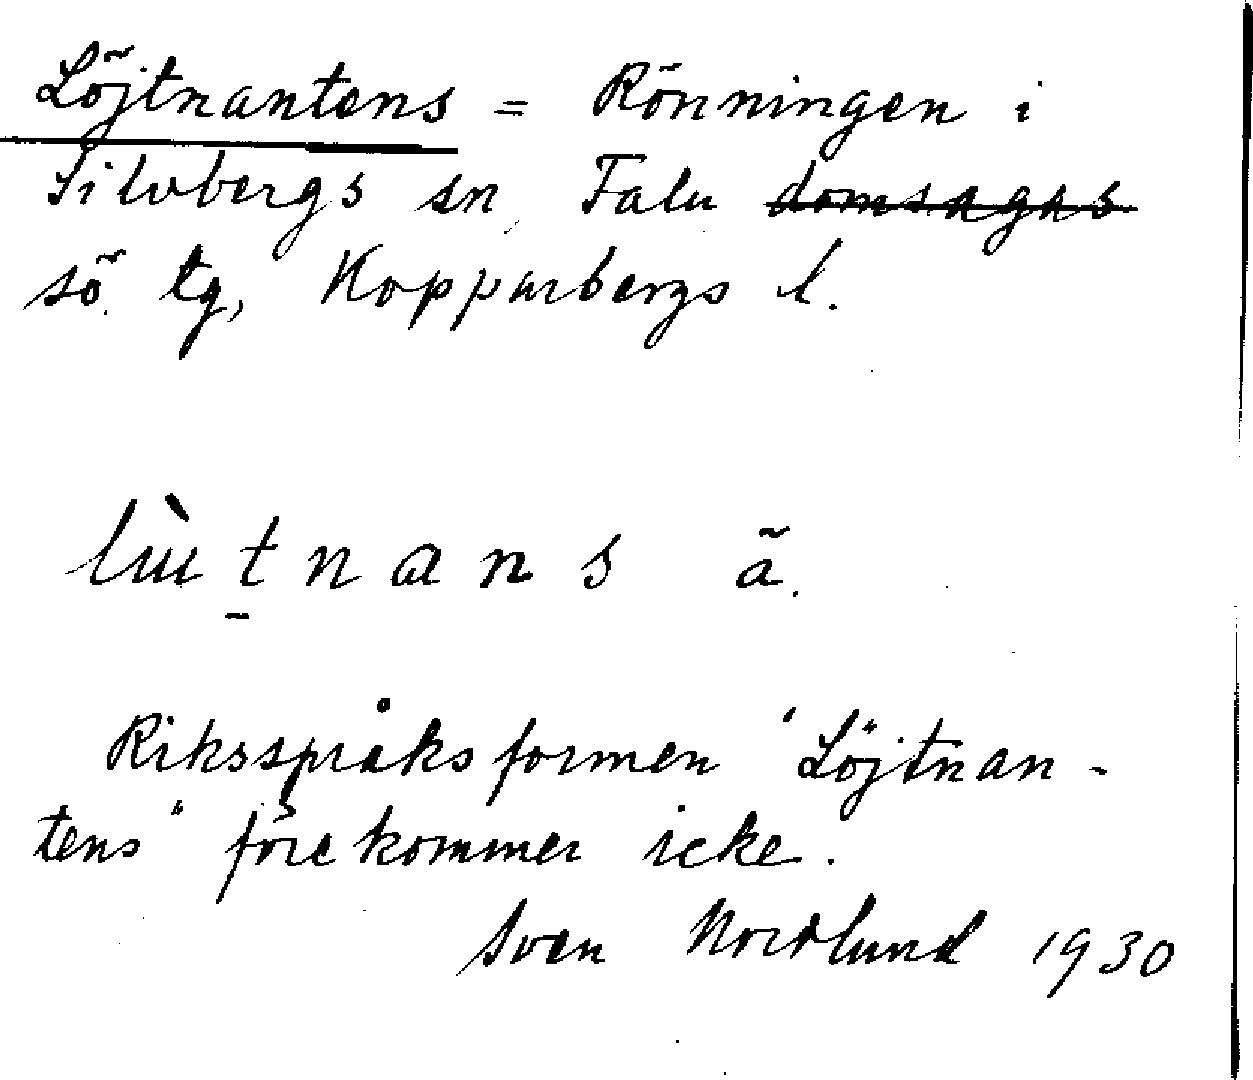 Löjtnantens = Rönningen i
Silvbergs sn, Falu domsagas
sö. tg, Kopparbergs l.
lùtnans ã.
Riksspråksformen "Löjtnan-
tens" förekommer icke.
Sven Nordlund 1930